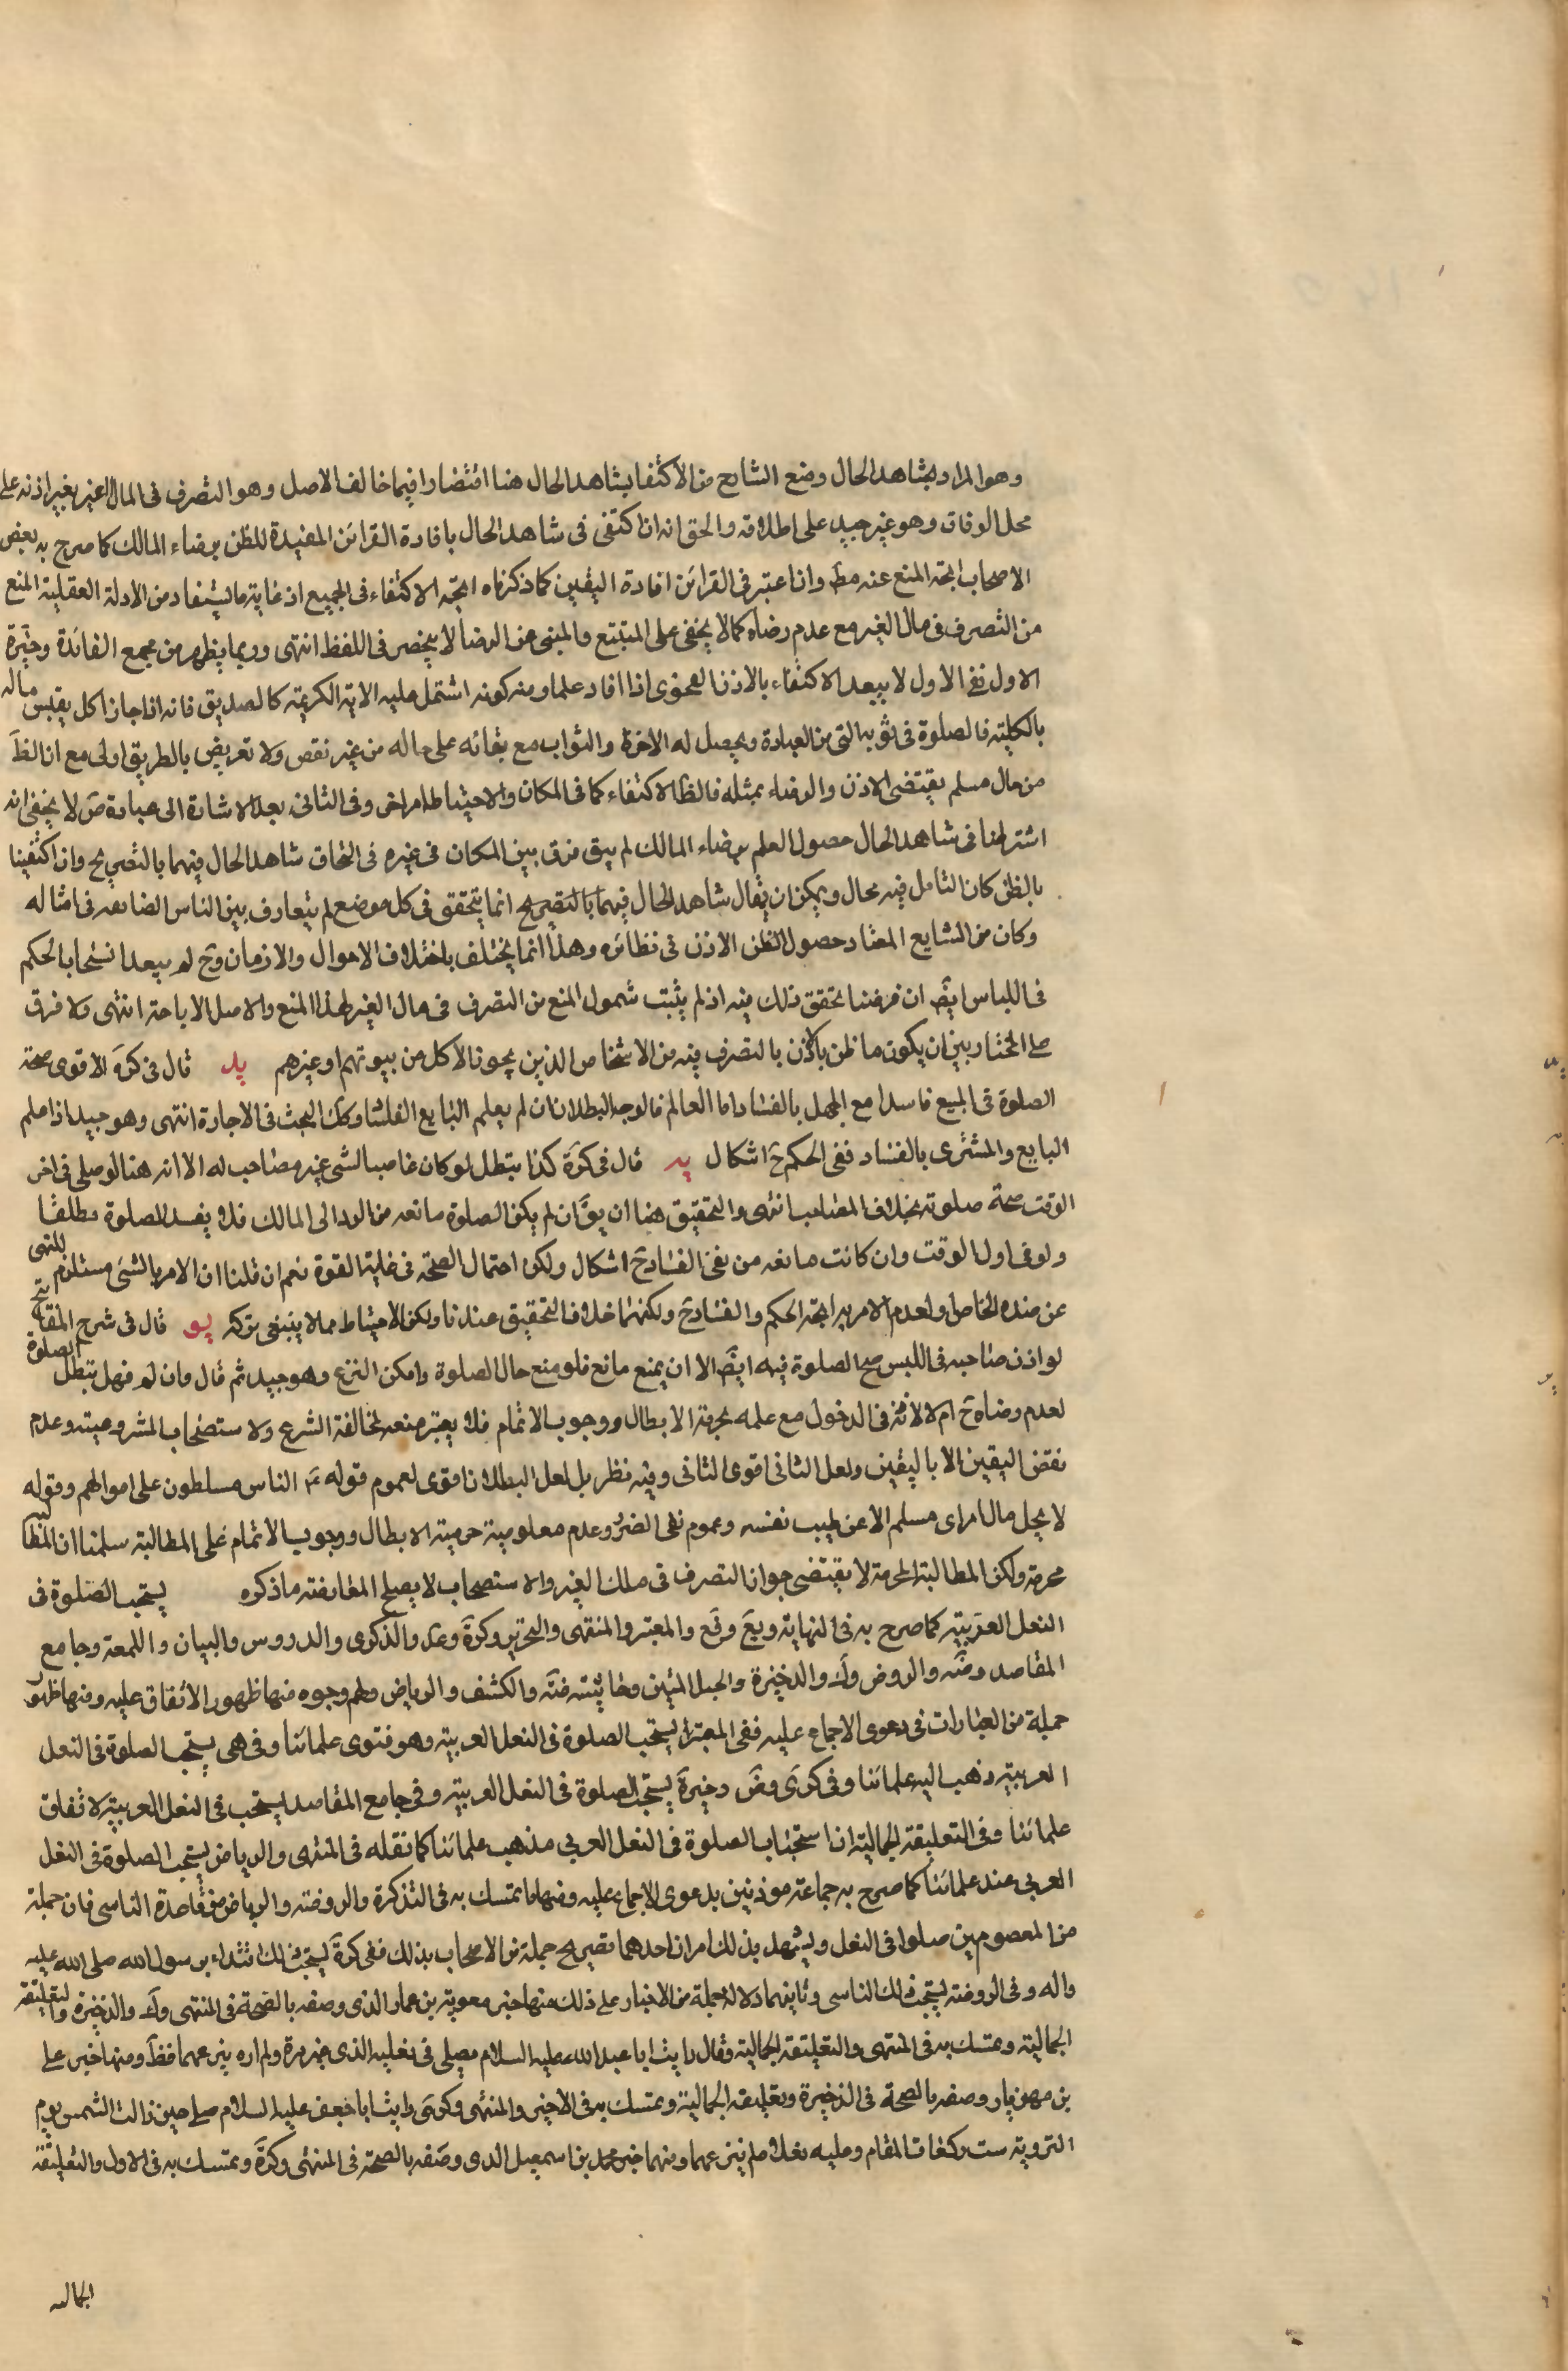 وهو المراد بشاهد الحال ومنع الشارح من الاكتفا بشاهد الحال هنا اقتصارا فيما خالف الاصل وهو التصرف فى المال الغير بغير اذنه على
محل الوفاق وهو غير جيد على اطلاقه والحق انه ان اكتفى فى شاهد الحال بافادة القرائن المفيدة للظن برضاء المالك كما صرح به بعض
الاصحاب اتجه المنع عنه مط وان اعتبر فى القرائن افادة اليقين كما ذكرناه اتجه الاكتفاء فى الجميع اذ غاية ما يستفاد من الادلة العقلية المنع
من التصرف فى مال الغير مع عدم رضاه كما لا يخفى على المتتبع والمبنى عن الرضا لا ينحصر فى اللفظ انتهى وربما يظهر من مجمع الفائدة وخيرة
الاول ففى الاول لا يبعد الاكتفاء بالاذن الفحوى اذا افاد علما ومنه كونه اشتمل عليه الاية الكريمة كالصديق فانه اذا جاز اكل بعض ماله
بالكلية فالصلوة فى ثوبه التى من العبادة ويحصل له الاخرة والثواب مع بقائه على حاله من غير نقص ولا تعريض بالطريق اولى مع ان الظ
من حال مسلم يقتضى الاذن والرضاء بمثله فالظ الاكتفاء كما فى المكان والاحتياط امر اخر وفى الثانى بعد الاشارة الى عبادة ض لا يخفى انه
اشترطنا فى شاهد الحال حصول العلم برضاء المالك لم يبق فرق بين المكان فى غيره فى التحاق شاهد الحال فيهما بالتصريح وان اكتفينا
بالظن كان التامل فيه مجال ويمكن ان يقال شاهد الحال فيهما بالتصريح انما يتحقق فى كل موضع لم يتعارف بين الناس المضايقه فى امثاله
وكان من الشايع المعتاد حصول الظن الاذن فى نظائره وهذا انما يختلف باختلاف الاحوال والازمان وح لم يبعد انسحاب الحكم
فى اللباس ايض ان فرضنا تحقق ذلك فيه اذ لم يثبت شمول المنع من التصرف فى مال الغير لهذا المنع والاصل الاباحة انتهى ولا فرق
على المختار بين ان يكون ما ظن بالاذن بالتصرف فيه من الاشخاص الذين يجوز الاكل من بيوتهم او غيرهم يد قال فى كره الاقوى صحة
الصلوة فى المبيع فاسدا مع الجهل بالفساد اما العالم فالوجه البطلان ان لم يعلم البايع الفساد وكك البحث فى الاجارة انتهى وهو جيد اذا علم
البايع والمشترى بالفساد ففى الحكم ح اشكال يه قال فى كرة كذا يبطل لو كان غاصبا لشى غير مصاحب له الا انه هنا لو صلى فى اخر
الوقت صحة صلوته بخلاف المصاحب انتهى والتحقيق هنا ان يق ان لم يكن الصلوة مانعه من الرد الى المالك فلا يفسد الصلوة مطلقا
ولو فى اول الوقت وان كانت مانعه من ففى الفساد ح اشكال ولكن احتمال الصحة فى غاية القوة نعم ان قلنا ان الامر بالشئ مستلزم للنهى
عن ضده الخاص او لعدم الامر به اتجه الحكم والفساد ح ولكنهما خلاف التحقيق عندنا ولكن الاحتياط مما لا ينبغى تركه يو قال فى شرح المفاتيح
لو اذن صاحبه فى اللبس صح الصلوة فيه ايض الا ان يمنع مانع فلو منع حال الصلوة وامكن النزع وهو جيد ثم قال وان لم فهل تبطل الصلوة
لعدم رضاه ح ام لا لاذنه فى الدخول مع علمه بحرمة الابطال ووجوب الاتمام فلا يعتبر منعه لمخالفة الشرع ولاستصحاب المشروعية وعدم
نقض اليقين الا باليقين ولعل الثانى اقوى الثانى وفيه نظر بل لعل البطلان اقوى لعموم قوله ع الناس مسلطون على اموالهم وقوله
لا يحل مال امرأى مسلم الا عن طيب نفسه وعموم نفى الضرر وعدم معلومية حرمية الابطال ووجوب الاتمام على المطالبة سلمنا ان المطالبة
محرمة ولكن المطالبة المحرمة لا يقتضى جواز التصرف فى ملك الغير والاستصحاب لا يصلح المعارضة ما ذكروه يستحب الصلوة فى
النعل العربية كما صرح به فى النهاية ويع وفع والمعتبر والمنتهى والتحرير وكرة وعد والذكرى والدروس والبيان واللمعة وجامع
المقاصد وضه والروض وك والذخيرة والحبل المتين وحاشيته ضه والكشف والرياض ولهم وجوه منها ظهور الاتفاق عليه ومنها ظهور
جملة من العبارات فى دعوى الاجماع عليه ففى المعتبر يستحب الصلوة فى النعل العربية وهو فتوى علمائنا وفى هى يستحب الصلوة فى النعل
العربية ذهب اليه علمائنا وفى كرى وض وخيرة يستحب الصلوة فى النعل العربية وفى جامع المقاصد يستحب فى النعل العربية لاتفاق
علمائنا وفى التعليقة الجمالية ان استحباب الصلوة فى النعل العربى مذهب علمائنا كما نقله فى المنتهى والرياض يستحب الصلوة فى النعل
العربى عند علمائنا كما صرح به جماعة موذنين بدعوى الاجماع عليه ومنها ما تمسك به فى التذكرة والروضة والرياض من قاعدة التاسى فان جملة
من المعصومين صلوا فى النعل ويشهد بذلك امران احدهما تصريح جملة من الاصحاب بذلك ففى كرة يستحب ذلك اقتداء برسول الله صلى الله عليه
واله وفى الروضة يستحب ذلك التاسى وثانيهما دلالة جملة من الاخبار على ذلك منها خبر معوية بن عمار الذى وصفه بالصحة فى المنتهى وك والذخيرة والتعليقة
الجمالية وتمسك به فى المنتهى والتعليقة الجمالية وقال رايت ابا عبد الله عليه السلام يصلى فى نعليه الذى غير مرة ولم اره ينزعهما قط ومنها خبر على
بن مهزيار وصفه بالصحة فى الذخيرة وتعليقه الجمالية وتمسك به فى الاخير والمنتهى وكرى رايت ابا جعفر عليه السلام صلى حين زالت الشمس يوم
التروية ست ركعات المقام وعليه نعلاه لم ينزعهما ومنها خبر محمد بن اسمعيل الذى وصفه بالصحة فى المنتهى وكرة وتمسك به فى الاول والتعليقة
الجمالية